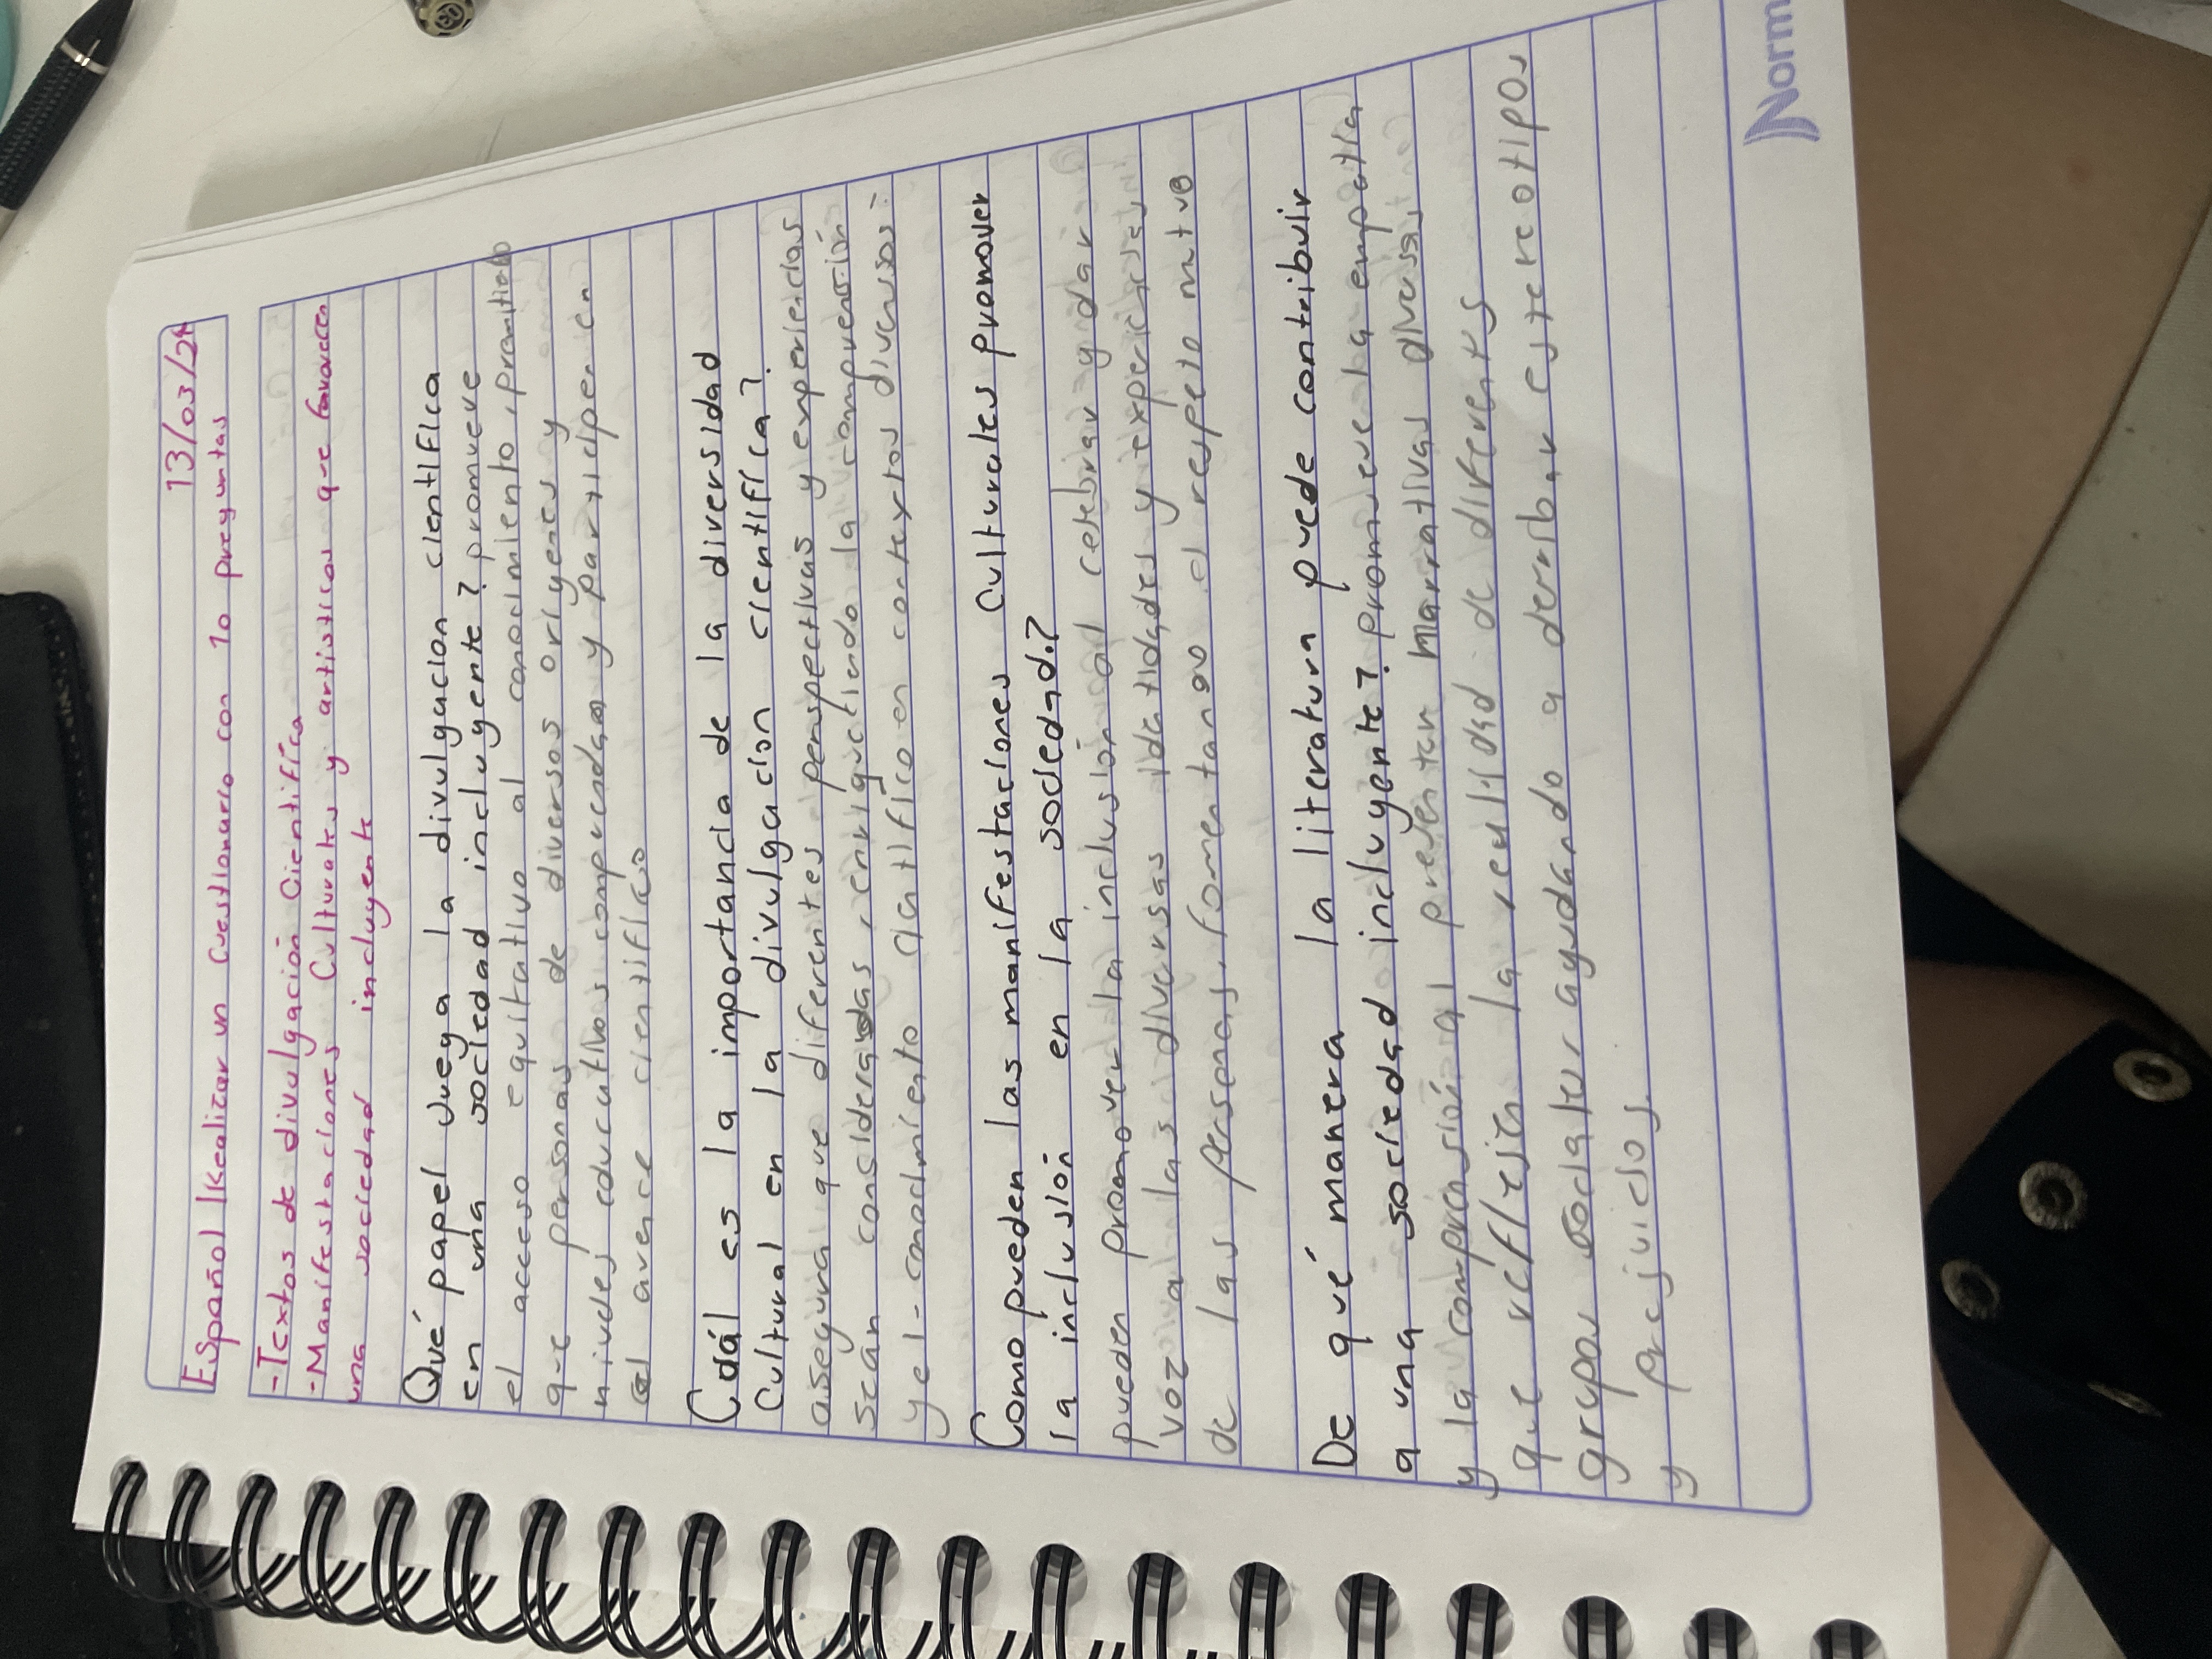 13/03/24
Español Realizar un cuestionario con 10 preguntas
-Textos de divulgación Científica
-Manifestaciones Culturales y artisticas que favorecen
una sociedad incluyente
Qué papel juega la divulgacion cientifica
en una sociedad incluyente? promueve
el acceso equitativo al conocimiento,
que personas de diversos origenes y
niveles educativos comprendan y participen en
el avance científico
Cuál es la importancia de la diversidad
Cultural en la divulgacion cientifica?
asegura que diferentes perspectivas y experiencias
sean consideradas, enriqueciendo la comprensión
y el conocimiento científico en contextos diversos.
Como pueden las manifestaciones Culturales promover
la inclusión en la sociedad?
pueden promover la inclusión al celebrar y dar
voz a las diversas identidades y experiencias
de las personas, fomentando el respeto mutuo
De qué manera la literatura puede contribuir
a una sociedad incluyente? promueve la empatía
y la comprensión al presentar narrativas diversas,
que reflejen la realidad de diferentes
grupos sociales ayudando a derribar estereotipos
y prejuicios.
Norm